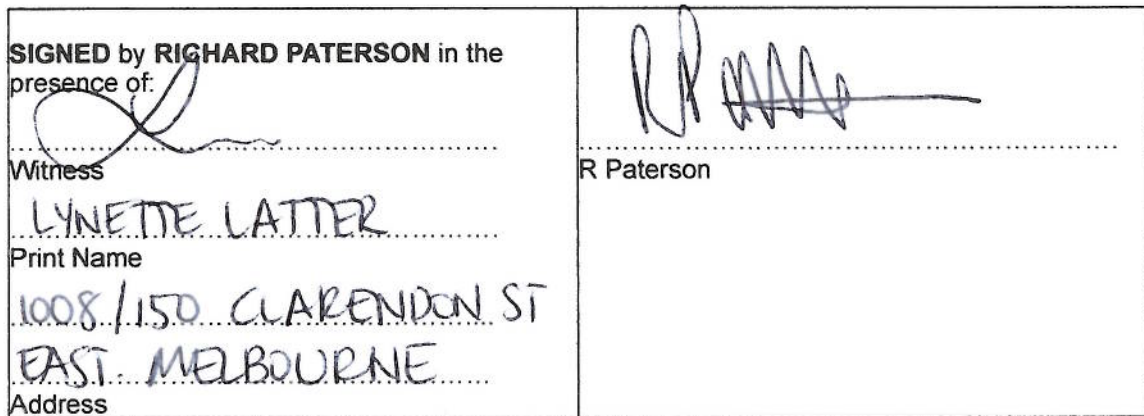 SIGNED by RICHARD PATERSON in the
presence of:
Witness
LYNETTE LATTER
Print Name
1008/150 CLARENDON ST
EAST MELBOURNE
Address
R Paterson